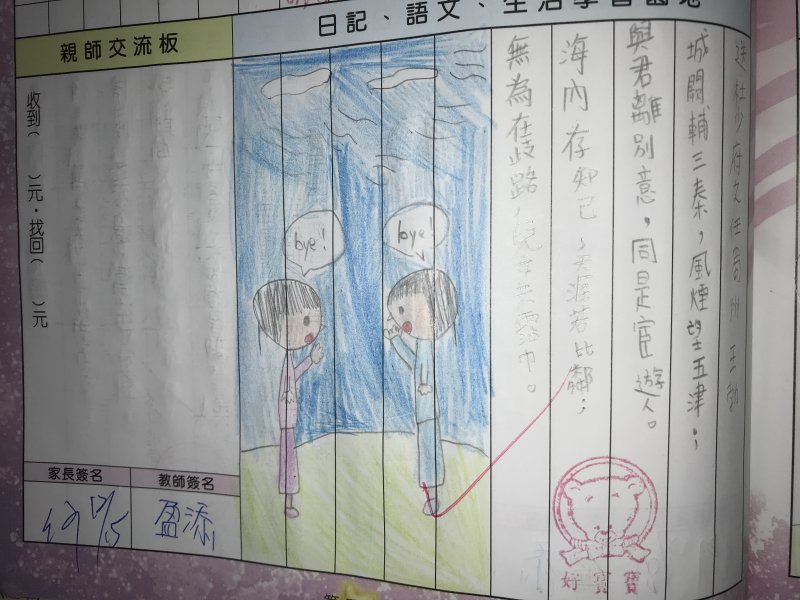 日記、語文、生活學習園地
送杜少府之任蜀州 王勃
城闕輔三秦，風煙望五津；
與君離別意，同是宦遊人。
海內存知己，天涯若比鄰；
無為在歧路，兒女共霑巾。
bye!
bye!
好寶寶
親師交流板
收到（　）元，找回（　）元
家長簽名
教師簽名
12/5
盈添